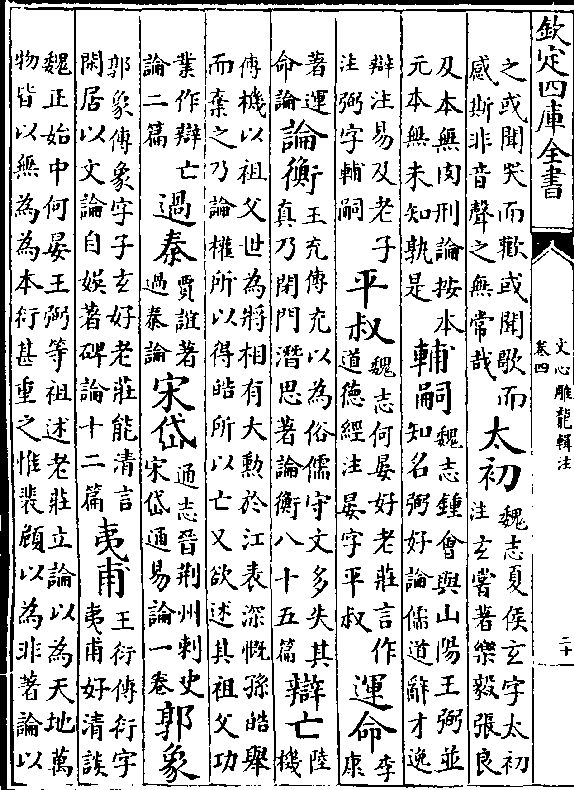 欽定四庫全書
文心雕龍輯注
卷四
二十
之或聞哭而歡或聞歌而
感斯非音聲之無常哉
太初
魏志夏侯玄字太初
注玄嘗著樂毅張良
及本無肉刑論按本
元本無未知孰是
輔嗣
魏志鍾會與山陽王弼並
知名弼好論儒道辭才逸
辯注易及老子
注弼字輔嗣
平叔
魏志何晏好老莊言作
道德經注晏字平叔
運命
李
康
著運
命論
論衡
王充傳充以為俗儒守文多失其
真乃閉門潛思著論衡八十五篇
辯亡
陸
機
傳機以祖父世為將相有大勲於江表深慨孫皓舉
而棄之乃論權所以得皓所以亡又欲述其祖父功
業作辯亡
論二篇
過秦
賈誼著
過秦論
宋岱
通志晉荆州刺史
宋岱通易論一卷
郭象
郭象傳象字子玄好老莊能清言
閑居以文論自娛著碑論十二篇
夷甫
王衍傳衍字
夷甫好清談
魏正始中何晏王弼等祖述老莊立論以為天地萬
物皆以無為為本衍甚重之惟裴頠以為非著論以